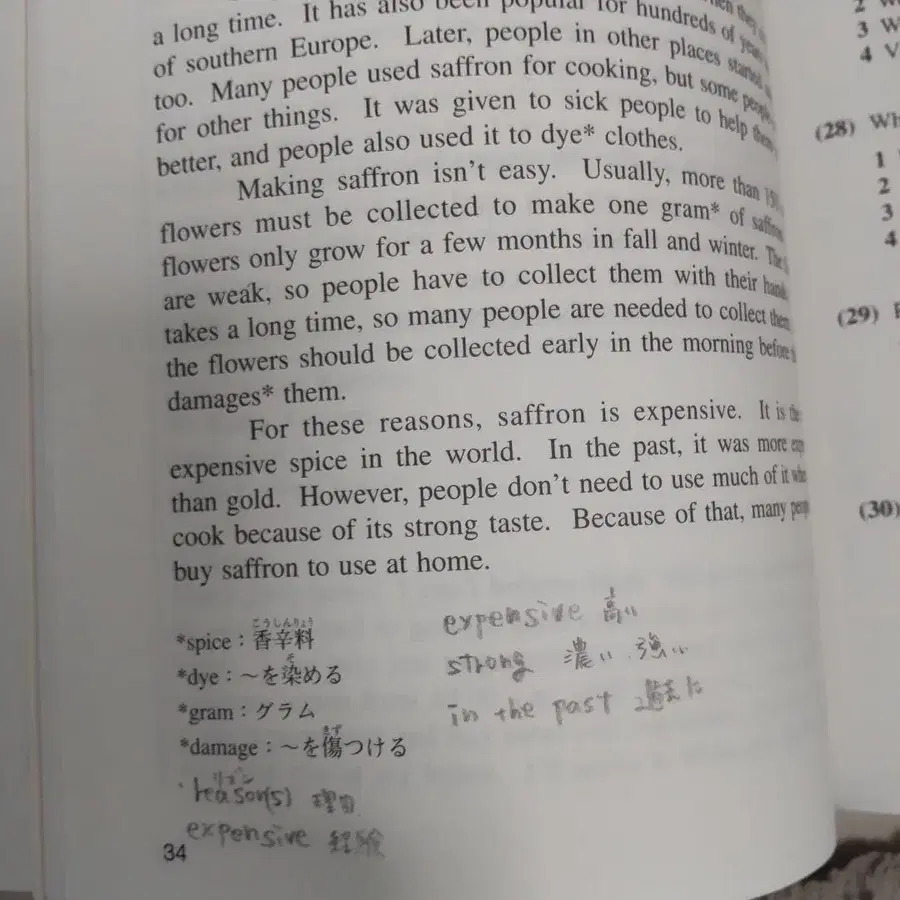 a long time. It has also been popular for hundreds of years
of southern Europe. Later, people in other places started
too. Many people used saffron for cooking, but some people
for other things. It was given to sick people to help them
better, and people also used it to dye* clothes.
Making saffron isn't easy. Usually, more than 150
flowers must be collected to make one gram* of saffron
flowers only grow for a few months in fall and winter. The
are weak, so people have to collect them with their hands
takes a long time, so many people are needed to collect them
the flowers should be collected early in the morning before
damages* them.
For these reasons, saffron is expensive. It is the
expensive spice in the world. In the past, it was more
than gold. However, people don't need to use much of it when
cook because of its strong taste. Because of that, many
buy saffron to use at home.
*spice:香辛料
こうしんりょう
*dye:~を染める
そ
*gram:グラム
*damage:~を傷つける
きず
reason(s) 理由
リーズン
expensive 経験
expensive 高い
strong 濃い 強い
in the past 過去に
34
2
3 W
4 V
(28) Wh
1
2
3
4
(29)
(30)